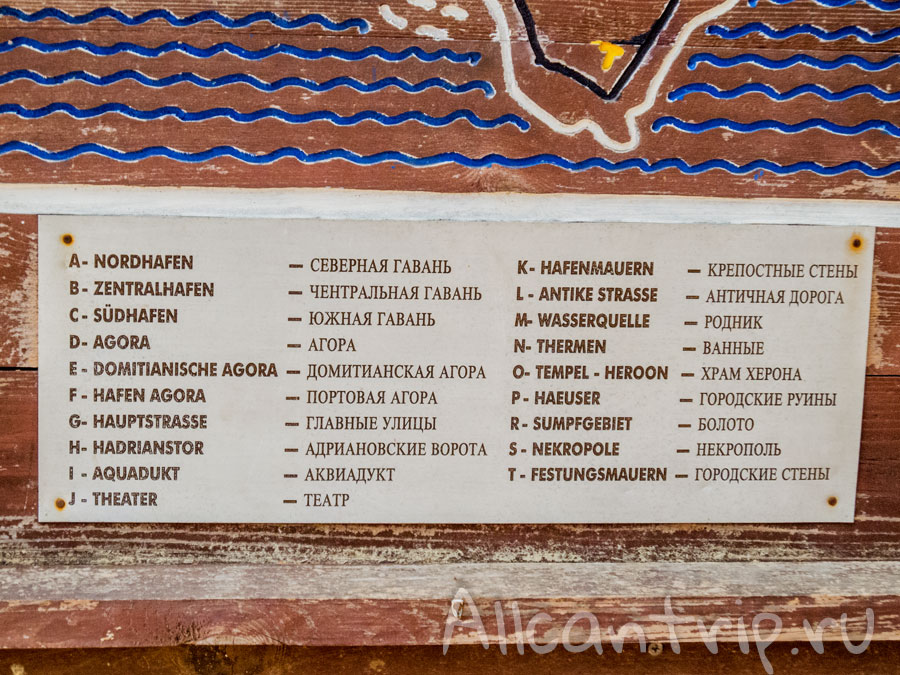 A- NORDHAFEN – СЕВЕРНАЯ ГАВАНЬ
B- ZENTRALHAFEN – ЧЕНТРАЛЬНАЯ ГАВАНЬ
C- SÜDHAFEN – ЮЖНАЯ ГАВАНЬ
D- AGORA – АГОРА
E- DOMITIANISCHE AGORA – ДОМИТИАНСКАЯ АГОРА
F- HAFEN AGORA – ПОРТОВАЯ АГОРА
G- HAUPTSTRASSE – ГЛАВНЫЕ УЛИЦЫ
H- HADRIANSTOR – АДРИАНОВСКИЕ ВОРОТА
I - AQUADUKT – АКВИАДУКТ
J- THEATER – ТЕАТР
K- HAFENMAUERN – КРЕПОСТНЫЕ СТЕНЫ
L - ANTIKE STRASSE – АНТИЧНАЯ ДОРОГА
M- WASSERQUELLE – РОДНИК
N- THERMEN – ВАННЫЕ
O- TEMPEL - HEROON – ХРАМ ХЕРОНА
P- HAEUSER – ГОРОДСКИЕ РУИНЫ
R - SUMPFGEBIET – БОЛОТО
S - NEKROPOLE – НЕКРОПОЛЬ
T - FESTUNGSMAUERN – ГОРОДСКИЕ СТЕНЫ
Allcantrip.ru